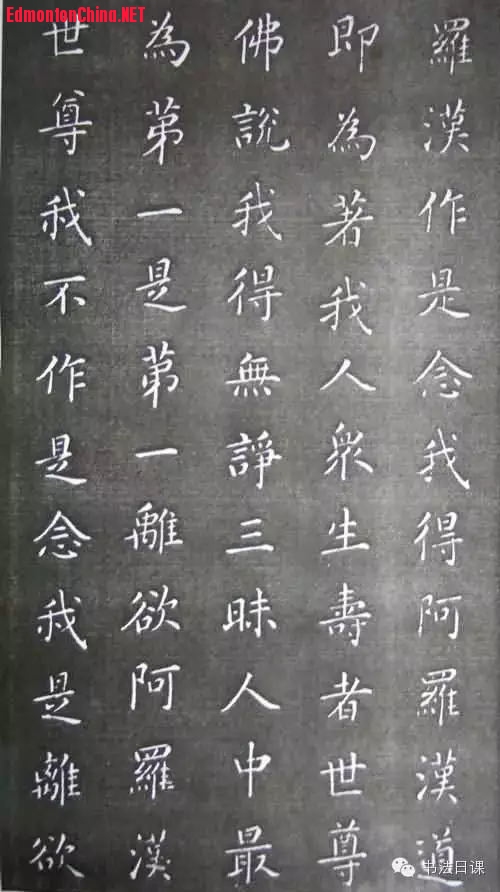 EdmontonChina.NET
羅漢作是念我得阿羅漢道
即為著我人眾生壽者世尊
佛說我得無諍三昧人中最
為第一是第一離欲阿羅漢
世尊我不作是念我是離欲
书法日课